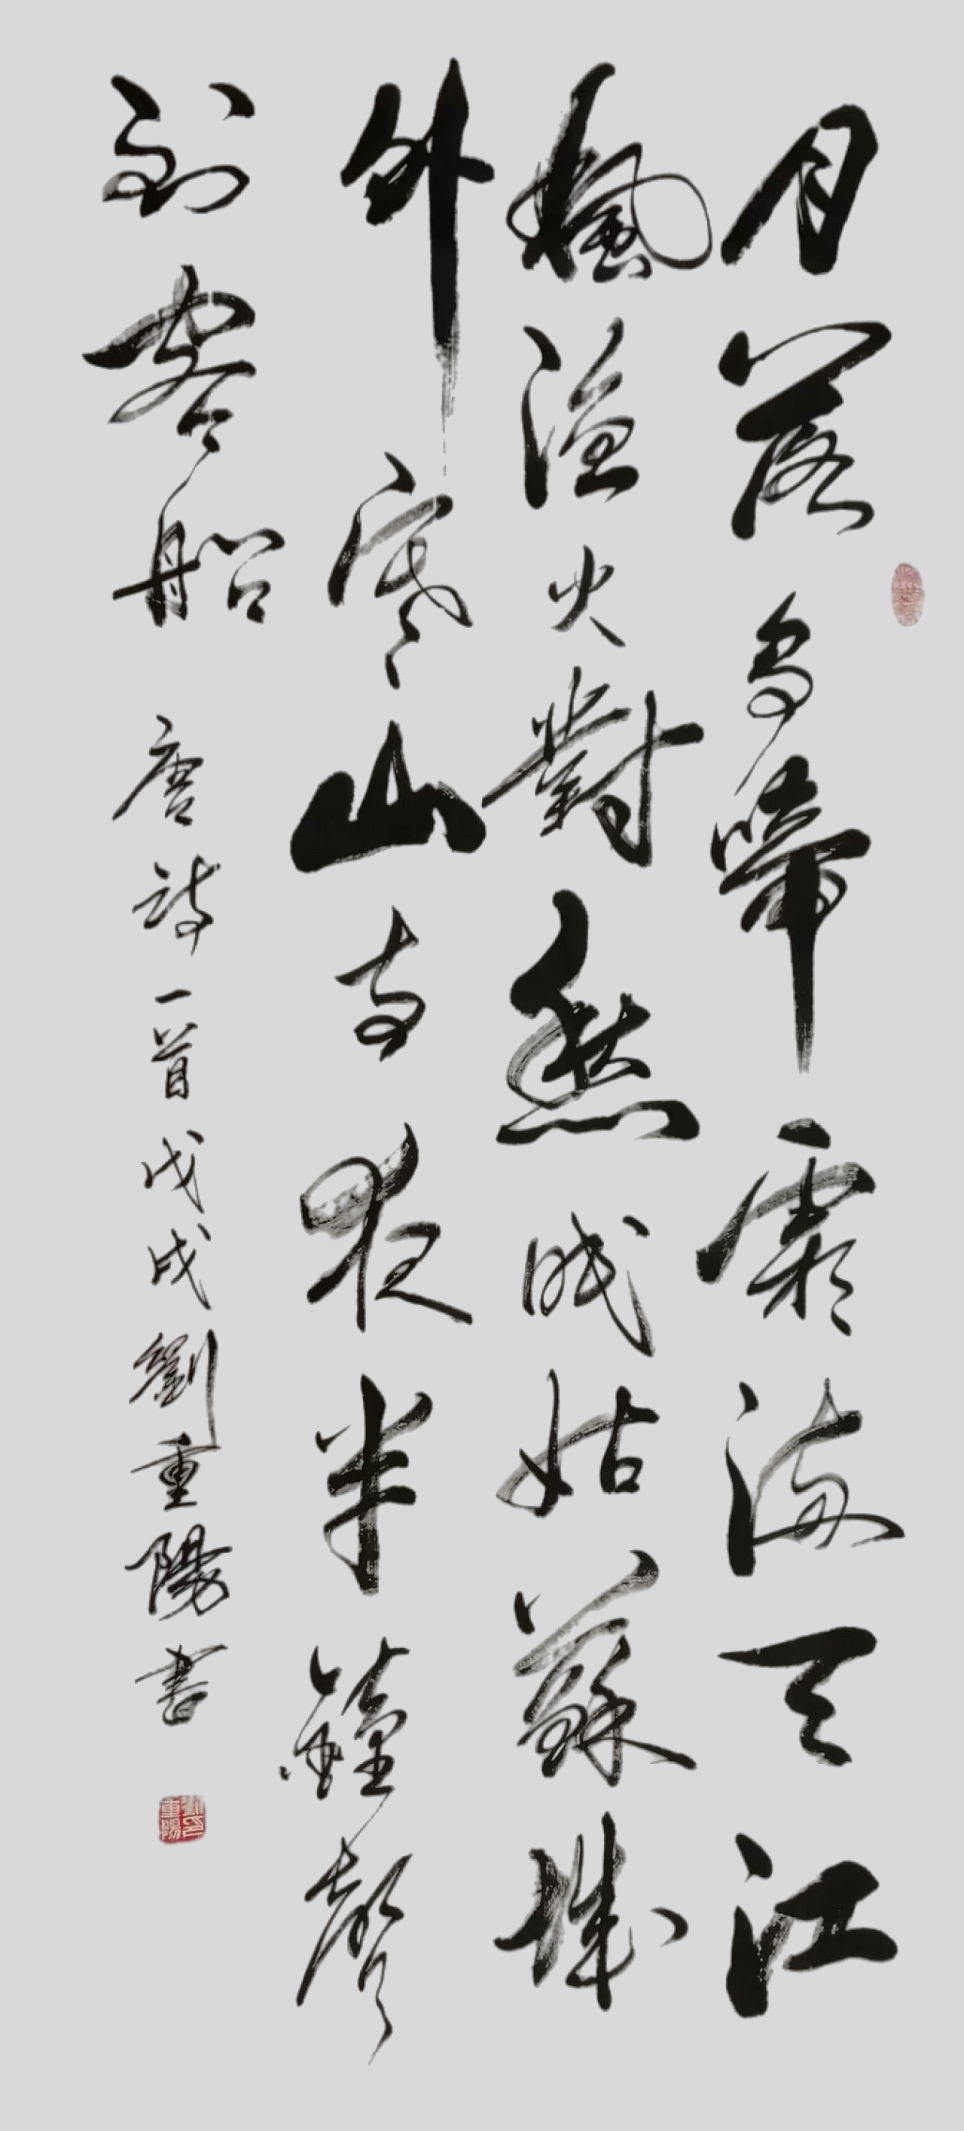 月落烏啼霜滿天江
楓漁火對愁眠姑蘇城
外寒山寺夜半鐘聲
到客船 唐詩一首戊戌劉重陽書
劉印重陽